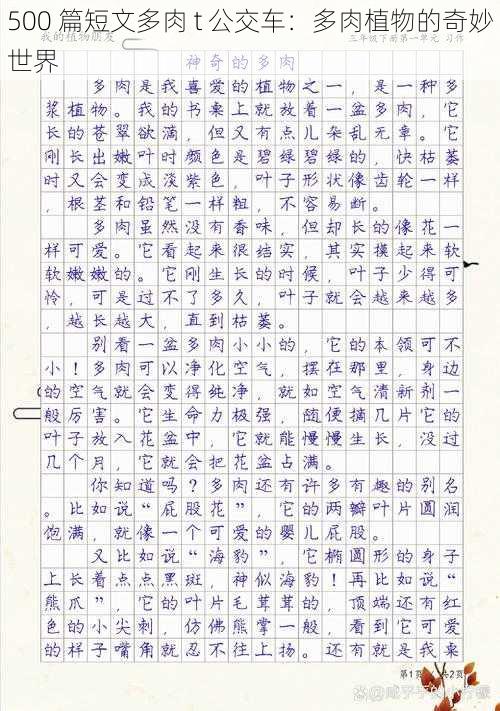 500 篇短文多肉 t 公交车：多肉植物的奇妙
世界
我的植物朋友
三年级下册第一单元 习作
神奇的多肉
多肉是我喜爱的植物之一，是一种多
浆植物。我的书桌上就放着一盆多肉，它
长的苍翠欲滴，但又有点儿杂乱无章。它
刚长出嫩叶时颜色是碧绿碧绿的，快枯萎
时又会变成淡紫色，叶子形状像齿轮一样
，根茎和铅笔一样粗，不容易断。
多肉虽然没有香味，但却长的像花一
样可爱。它看起来很结实，其实摸起来软
软嫩嫩的。它刚生长的时候，叶子少得可
怜，可是过不了多久，叶子就会越来越多
，越长越大，直到枯萎。
别看一盆多肉小小的，它的本领可不
小！多肉可以净化空气，摆在那里，身边
的空气就会变得纯净，就如空气清新剂一
般厉害。它生命力极强，随便摘几片它的
叶子放入花盆中，它就能慢慢生长，没过
几个月，它就会把花盆占满。
你知道吗？多肉还有许多有趣的别名
。比如说“屁股花”，它的两瓣叶片圆润
饱满，就像一个可爱的婴儿屁股。
又比如说“海豹”，它椭圆形的身子
上长着点点黑斑，神似海豹！再比如说“
熊爪”，它的叶片毛茸茸的，顶端还有红
色的小尖刺，仿佛熊掌一般，看到它可爱
的样子嘴角就忍不住上扬。还有就是我桌
第1页 共2页